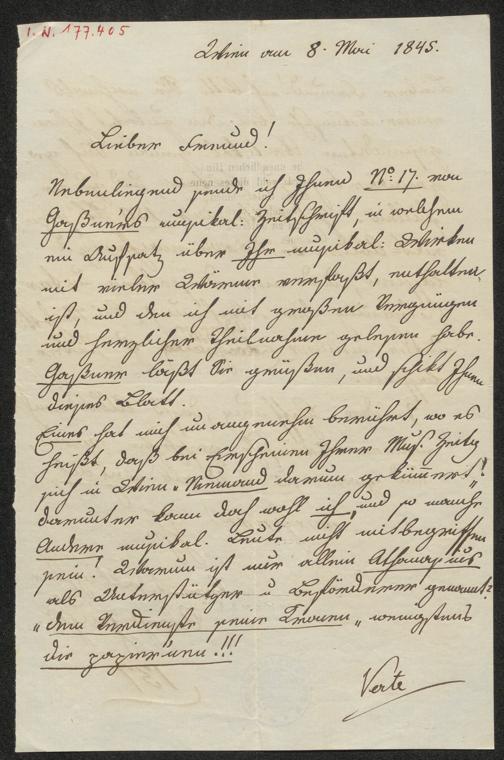 I. N. 177.405
Wien am 8. Mai 1845.
Lieber Freund!
Nebenliegend sende ich Ihnen No. 17. von
Gaßner's musikal: Zeitschrift, in welchem
ein Aufsatz über Ihr musikal: Wirken
mit vieler Wärme verfaßt, enthalten
ist, und den ich mit großen Vergnügen
und herzlicher Theilnahme gelesen habe.
Gaßner läßt Sie grüßen, und schikt Ihnen
dieses Blatt.
Eines hat mich unangenehm berührt, wo es
heißt, daß bei Erscheinen Ihrer Mus. Zeitg
sich in Wien "Niemand darum gekümmert!"
darunter kann doch wohl ich, und so manche
Andere musikal. Leute nicht mitbegriffen
sein! Warum ist nur allein Athanasius
als Unterstützer u Beförderer genannt?
"dem Verdienste seine Kronen" wenigstens
die papiernen!!!
Verte